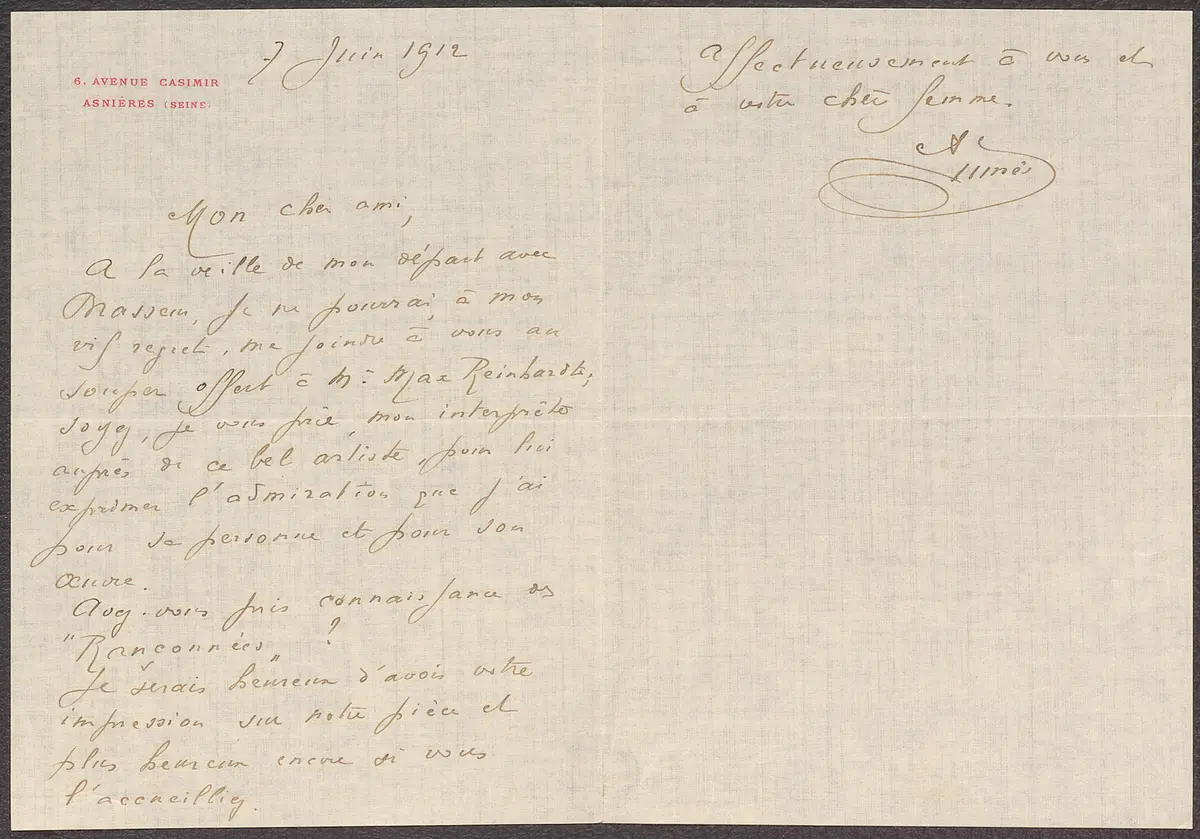 6, AVENUE CASIMIR
ASNIÈRES (SEINE)
7 Juin 1912
Mon cher ami,
A la veille de mon départ avec
je ne pourrai, à mon
vif regret, me joindre à vous au
souper offert à Mr Max Reinhardt;
soyez, je vous prie, mon interprète
auprès de ce bel artiste, pour lui
exprimer l'admiration que j'ai
pour sa personne et pour son
œuvre.
Avez-vous pris connaissance des
"Rançonnées" ?
Je serais heureux d'avoir votre
impression sur notre pièce et
plus heureux encore si vous
l'accueilliez.
Affectueusement à vous et
à votre chère femme.